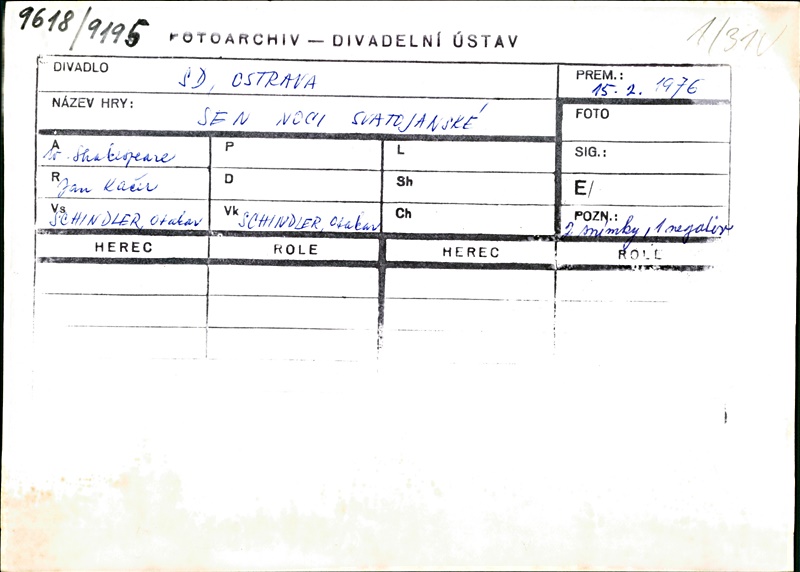 9618/9195
FOTOARCHIV — DIVADELNÍ ÚSTAV
1/31V
DIVADLO SD, OSTRAVA
PREM.: 15. 2. 1976
NÁZEV HRY: SEN NOCI SVATOJANSKÉ
FOTO
A W. Shakespeare
P
L
SIG.:
R Jan Kačer
D
Sh
E/
Vs SCHINDLER, Otakar
Vk SCHINDLER, Otakar
Ch
POZN.: 2 snímky, 1 negativ
HEREC ROLE HEREC ROLE